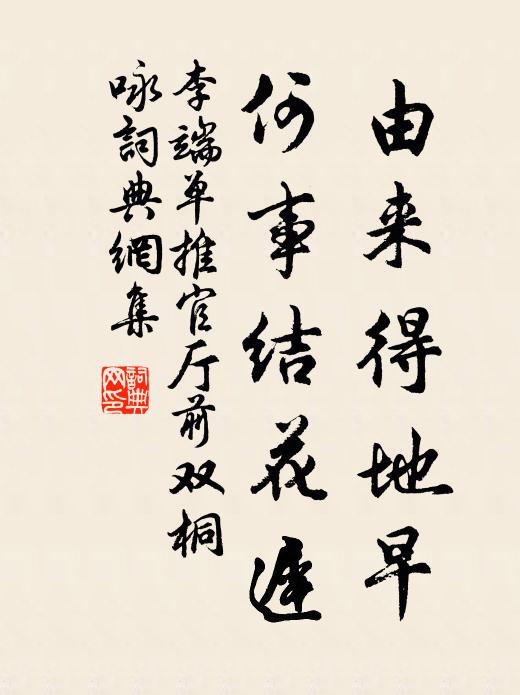 由来得地早
何事结花遲
李端单推官厅前双桐
咏詞典網集
詞典
网印